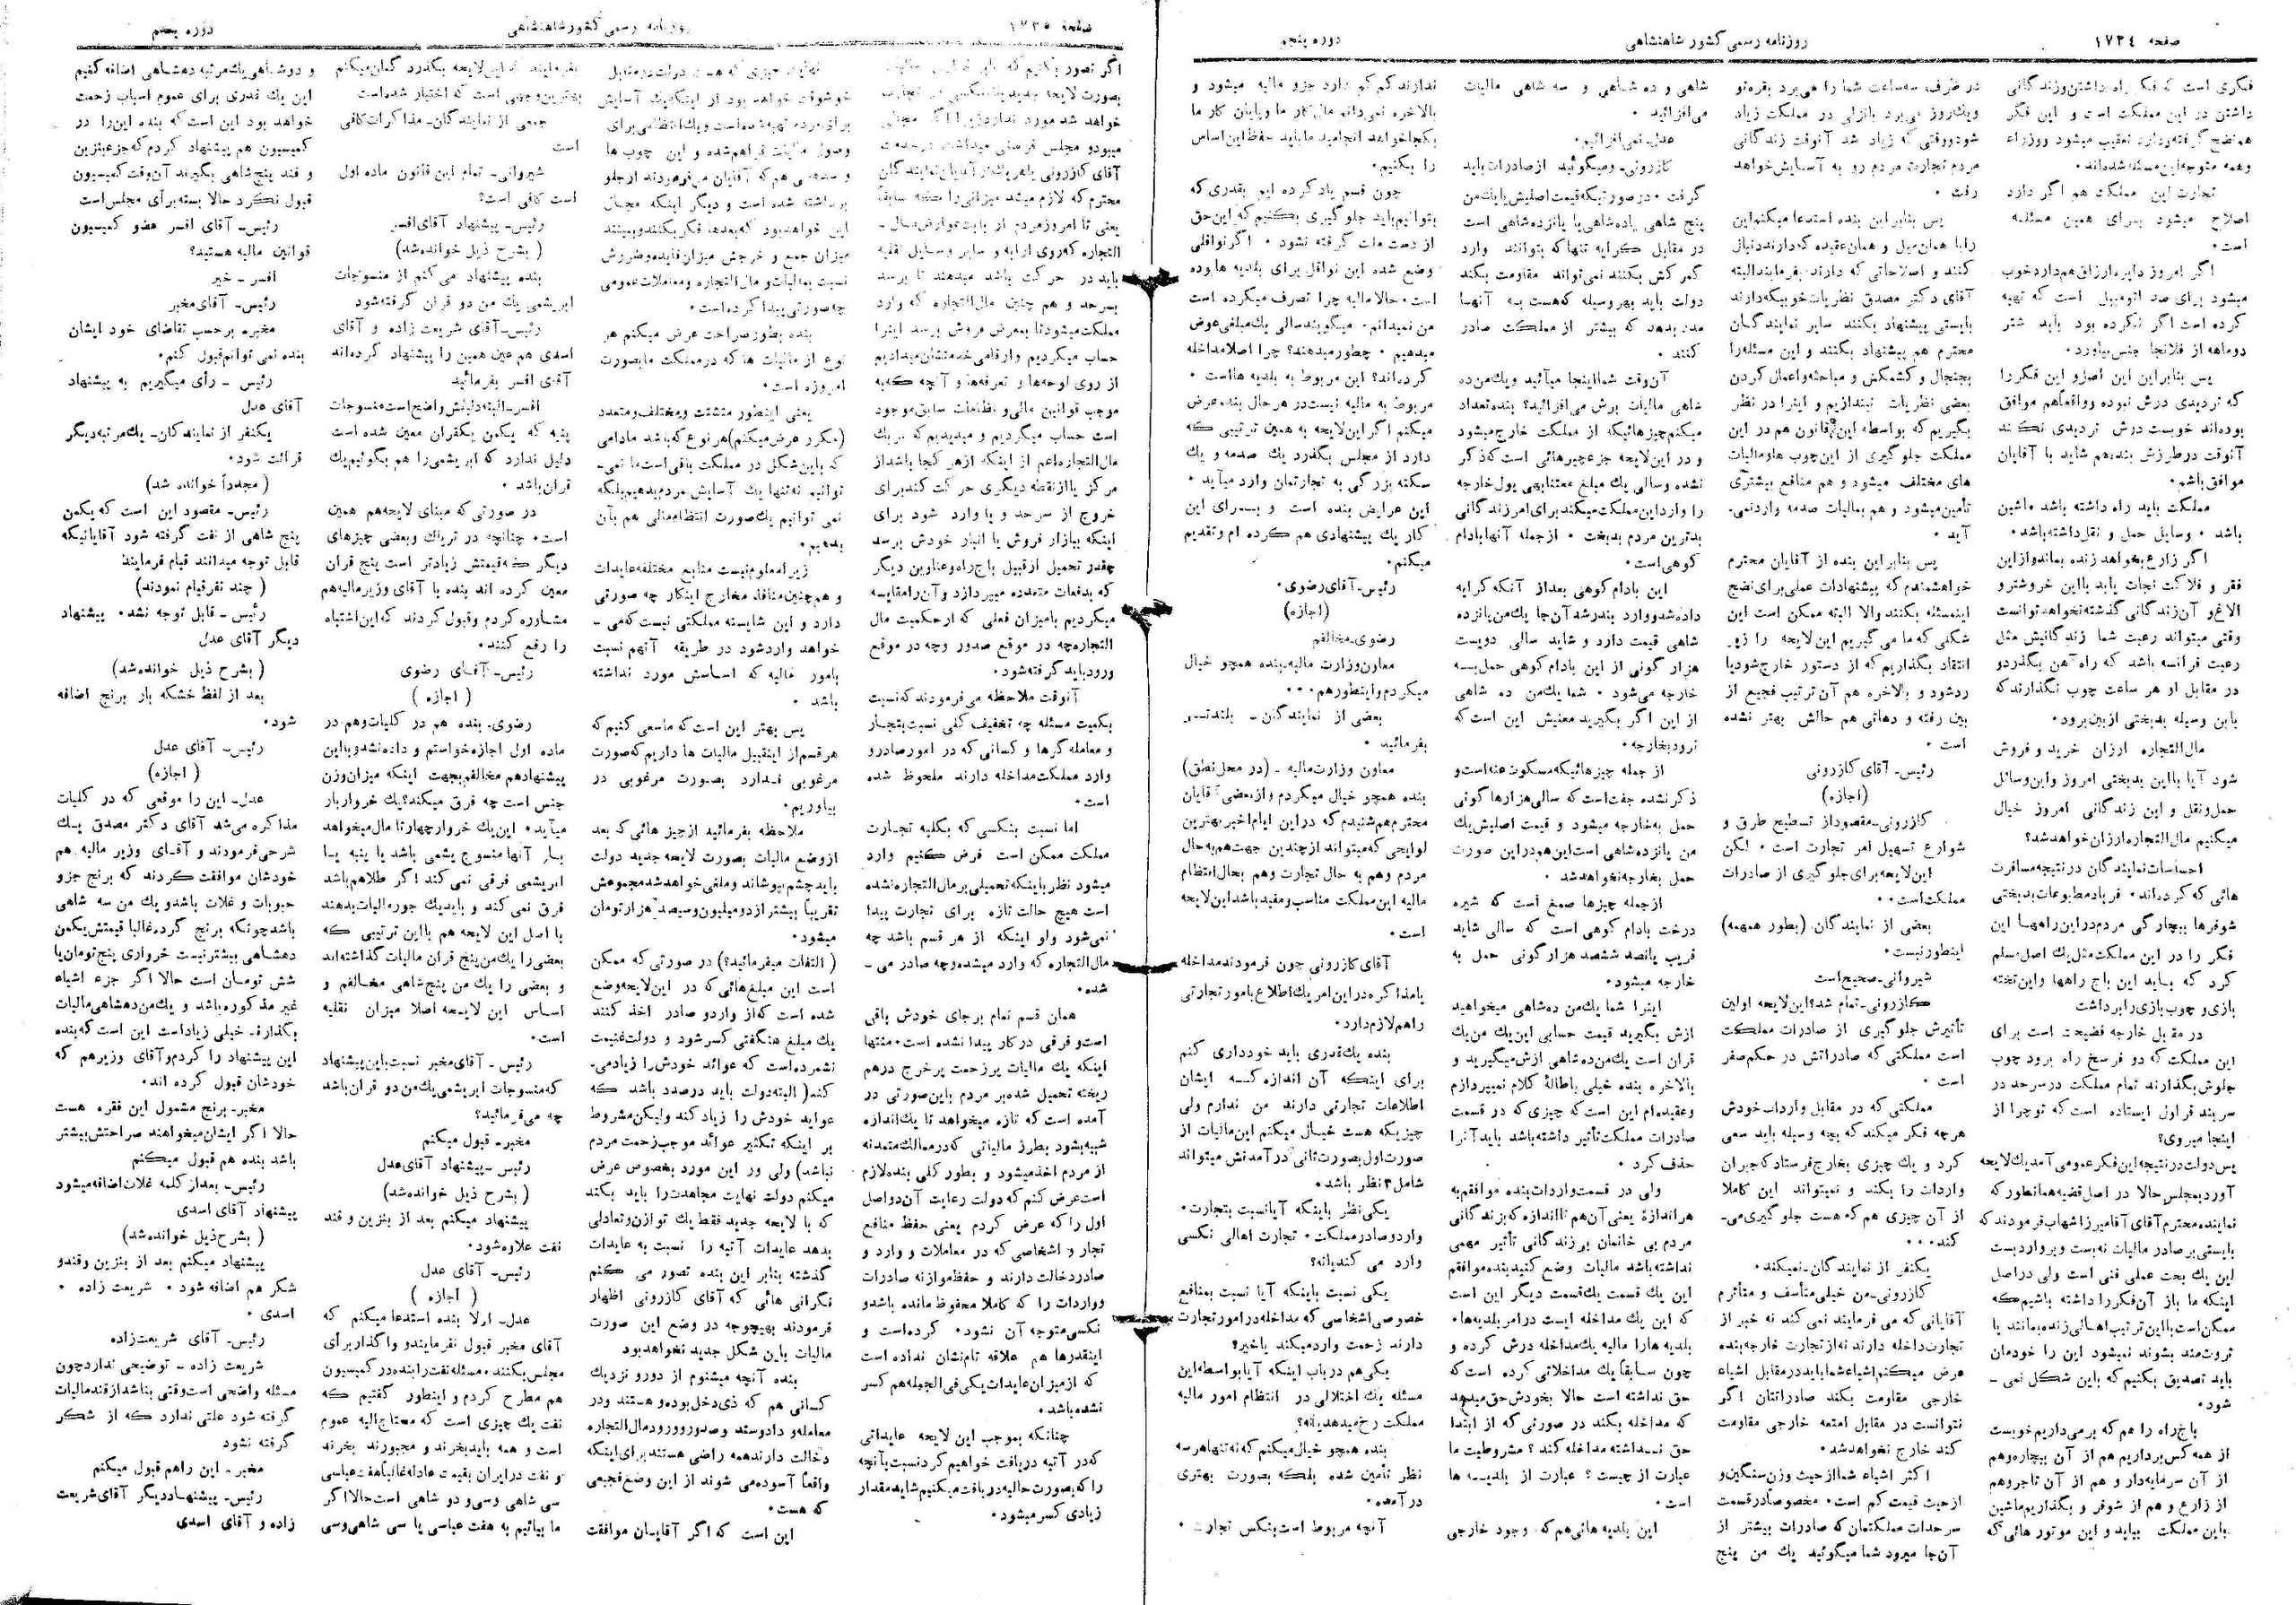 صفحه ۱۷۳٤
روزنامه رسمی کشور شاهنشاهی
دوره پنجم
فکری است که فکر راه داشتن و زندگانی
داشتن در این مملکت است و این فکر
هم نضج گرفته و دارد تعقیب میشود و وزراء
و همه متوجه این مسئله شده‌اند.
تجارت این مملکت هم اگر دارد
اصلاح میشود برای همین مسئله
است.
اگر امروز دایره ارزاق هم دارد خوب
میشود برای صد اتومبیل است که تهیه
کرده است اگر نکرده بود باید شتر
دوماهه از فلانجا جنس بیاورد.
پس بنابراین این اصل و این فکر را
که تردیدی درش نبوده و واقعاً هم موافق
بوده‌اند خوبست درش تردیدی نکنند
آنوقت در طرزش بنده هم شاید با آقایان
موافق باشم.
مملکت باید راه داشته باشد ماشین
باشد. وسایل حمل و نقل داشته باشد.
اگر زارع بخواهد زنده بماند و از این
فقر و فلاکت نجات یابد با این خر و شتر و
الاغ و آن زندگانی گذشته نخواهد توانست
وقتی میتواند رعیت شما زندگانیش مثل
رعیت فرانسه باشد که راه آهن بگذرد و
در مقابل او هر ساعت چوب نگذارند که
باین وسیله بدبختی از بین برود.
مال‌التجاره ارزان خرید و فروش
شود آیا با این بدبختی امروز و این وسائل
حمل و نقل و این زندگانی امروز خیال
میکنیم مال‌التجاره ارزان خواهد شد؟
احساسات نمایندگان در نتیجه مسافرت
هائی که کرده‌اند. فریاد مطبوعات بدبختی
شوفرها بیچارگی مردم در این راهها این
فکر را در این مملکت مثل یك اصل مسلم
کرد که باید این باج راهها و این تخته
بازی و چوب بازی را برداشت
در مقابل خارجه فضیحت است برای
این مملکت که دو فرسخ راه برود چوب
جلوش بگذارند تمام مملکت در سرحد در
سربند قراول ایستاده است که تو چرا از
اینجا میروی؟
پس دولت در نتیجه این فکر عمومی آمد یك لایحه
آورد بمجلس حالا در اصل قضیه همانطور که
نماینده محترم آقای آقا میرزا شهاب فرمودند که
بایستی بر صادر مالیات نه بست و بر وارد بست
این یك بحث عملی فنی است ولی در اصل
اینکه ما باز آن فکر را داشته باشیم که
ممکن است با این ترتیب اهالی زنده بمانند یا
ثروت مند بشوند نمیشود این را خودمان
باید تصدیق بکنیم که باین شکل نمی -
شود.
باج راه را هم که بر می‌داریم خوبست
از همه کس برداریم هم از آن بیچاره و هم
از آن سرمایه‌دار و هم از آن تاجر و هم
از زارع و هم از شوفر و بگذاریم ماشین
باین مملکت بیاید و این موتور هائی که
در ظرف سه ساعت شما را می‌برد بقره‌تو
و یك روز می‌برد بانزلی در مملکت زیاد
شود و وقتی که زیاد شد آنوقت زندگانی
مردم تجارت مردم رو به آسایش خواهد
رفت.
پس بنابر این بنده استدعا میکنم این
را با همان میل و همان عقیده که دارند دنبال
کنند و اصلاحاتی که دارند بفرمایند البته
آقای دکتر مصدق نظریات خوبی که دارند
بایستی پیشنهاد بکنند سایر نمایندگان
محترم هم پیشنهاد بکنند و این مسئله را
بجنجال و کشمکش و مباحثه و اعمال کردن
بعضی نظریات نیندازیم و اینرا در نظر
بگیریم که بواسطه این قانون هم در این
مملکت جلو گیری از این چوب ها و مالیات
های مختلف میشود و هم منافع بیشتری
تأمین میشود و هم بمالیات صدمه وارد نمی-
آید.
پس بنابر این بنده از آقایان محترم
خواهشمندم که پیشنهادات عملی برای نضج
اینمسئله بکنند والا البته ممکن است این
شکلی که ما می گیریم این لایحه را زیر
انتقاد بگذاریم که از دستور خارج شود یا
رد شود و بالاخره هم آن ترتیب فجیع از
بین رفته و دهاتی هم حالش بهتر نشده
است.
رئیس- آقای کازرونی
(اجازه)
کازرونی- مقصود از تسطیح طرق و
شوارع تسهیل امر تجارت است. لکن
این لایحه برای جلو گیری از صادرات
مملکت است..
بعضی از نمایندگان (بطور همهمه)
اینطور نیست.
شیروانی- صحیح است
کازرونی- تمام شد؟ این لایحه اولین
تأثیرش جلو گیری از صادرات مملکت
است مملکتی که صادراتش در حکم صفر
است.
مملکتی که در مقابل واردات خودش
هرچه فکر میکند که بچه وسیله باید سعی
کرد و یك چیزی بخارج فرستاد که جبران
واردات را بکند و نمیتواند این کاملا
از آن چیزی هم که هست جلو گیری می-
کند...
یکنفر از نمایندگان- نمیکند.
کازرونی- من خیلی متأسف و متأثرم
آقایانی که می فرمایند نمی کند نه خبر از
تجارت داخله دارند نه از تجارت خارجه بنده
عرض میکنم اشیاء شما باید در مقابل اشیاء
خارجی مقاومت بکند صادراتتان اگر
نتوانست در مقابل امتعه خارجی مقاومت
کند خارج نخواهد شد.
اکثر اشیاء شما از حیث وزن سنگین و
از حیث قیمت کم است. مخصوصاً در قسمت
سرحدات مملکتمان که صادرات بیشتر از
آن جا میرود شما میگوئید یك من پنج
شاهی و ده شاهی و سه شاهی مالیات
می‌افزائید.
عدل- نمی‌افزائیم.
کازرونی- و میگوئید از صادرات باید
گرفت. در صورتیکه قیمت اصلیش یا یك من
پنج شاهی یا ده شاهی یا پانزده شاهی است
در مقابل کرایه تنها که بتوانند وارد
گمرکش بکنند نمی تواند مقاومت بکند
دولت باید بهر وسیله که هست به آنها
مدد بدهد که بیشتر از مملکت صادر
کنند.
آن وقت شما اینجا میآئید و یك من ده
شاهی مالیات برش می‌افزائید؟ بنده تعداد
میکنم چیزهائیکه از مملکت خارج میشود
و در این لایحه جزء چیزهائی است که ذکر
نشده و سالی یك مبلغ معتنابهی پول خارجه
را وارد این مملکت میکند برای امر زندگانی
بدترین مردم بدبخت. از جمله آنها بادام
کوهی است.
این بادام کوهی بعد از آنکه کرایه
داده شد و وارد بندر شد آن جا یك من پانزده
شاهی قیمت دارد و شاید سالی دویست
هزار گونی از این بادام کوهی حمل به
خارجه می‌شود. شما یك من ده شاهی
از این اگر بگیرید معنیش این است که
نرود بخارجه.
از جمله چیزهائیکه مسکوت عنه است و
ذکر نشده جفت است که سالی هزارها گونی
حمل به خارجه میشود و قیمت اصلیش یك
من پانزده شاهی است این هم در این صورت
حمل بخارجه نخواهد شد.
از جمله چیزها صمغ است که شیره
درخت بادام کوهی است که سالی شاید
قریب پانصد ششصد هزار گونی حمل به
خارجه میشود.
اینرا شما یك من ده شاهی میخواهید
ازش بگیرید قیمت حسابی این یك من یك
قران است یك من ده شاهی ازش میگیرید و
بالاخره بنده خیلی باطالهٔ کلام نمیپردازم
و عقیده‌ام این است که چیزی که در قسمت
صادرات مملکت تأثیر داشته باشد باید آنرا
حذف کرد.
ولی در قسمت واردات بنده موافقم به
هر اندازهٔ یعنی آن هم تا اندازه که بزندگانی
مردم بی خانمان بر زندگانی تأثیر مهمی
نداشته باشد مالیات وضع کنید بنده موافقم
این یك قسمت یك قسمت دیگر این است
که این یك مداخله ایست در امر بلدیه‌ها.
بلدیه هارا مالیه یك مداخله درش کرده و
چون سابقاً یك مداخلاتی کرده است که
حق نداشته است حالا بخودش حق میدهد
که مداخله بکند در صورتی که از ابتدا
حق نداشته مداخله کند؟ مشروطیت ما
عبارت از چیست؟ عبارت از بلدیه ها
است.
این بلدیه هائی هم که وجود خارجی
ندارند کم کم دارد جزو مالیه میشود و
بالاخره نمی دانم مال کار ما و پایان کار ما
بکجا خواهد انجامید ما باید حفظ این اساس
را بکنیم.
چون قسم یاد کرده ایم بقدری که
بتوانیم باید جلو گیری بکنیم که این حق
از دست ملت گرفته نشود. اگر نواقلی
وضع شده این نواقل برای بلدیه ها بوده
است. حالا مالیه چرا تصرف میکرده است
من نمیدانم. میگویند سالی یك مبلغی عوض
میدهیم. چطور میدهند؟ چرا اصلا مداخله
کرده‌اند؟ این مربوط به بلدیه ها است.
مربوط به مالیه نیست در هر حال بنده عرض
میکنم اگر این لایحه به همین ترتیبی که
دارد از مجلس بگذرد یك صدمه و یك
سکته بزرگی به تجارتمان وارد میآید.
این عرایض بنده است و برای این
کار یك پیشنهادی هم کرده ام و تقدیم
میکنم.
رئیس- آقای رضوی.
(اجازه)
رضوی- مخالفم
معاون وزارت مالیه- بنده همچو خیال
میکردم و اینطور هم...
بعضی از نمایندگان - بلندتر
بفرمائید.
معاون وزارت مالیه - (در محل نطق)
بنده همچو خیال میکردم و از بعضی آقایان
محترم هم شنیدم که در این ایام اخیر بهترین
لوایحی که میتواند از چندین جهت هم به حال
مردم و هم به حال تجارت و هم بحال انتظام
مالیه این مملکت مناسب و مفید باشد این لایحه
است.
آقای کازرونی چون فرمودند مداخله
یا مذاکره در این امر یك اطلاع بامور تجارتی
را هم لازم دارد.
بنده یك قدری باید خودداری کنم
برای اینکه آن اندازه که ایشان
اطلاعات تجارتی دارند من ندارم ولی
چیزیکه هست خیال میکنم این مالیات از
صورت اول بصورت ثانی در آمدنش میتواند
شامل ۳ نظر باشد.
یکی نظر باینکه آیا نسبت بتجارت.
وارد و صادر مملکت. تجارت اهالی نکسی
وارد می کند یا نه؟
یکی نسبت باینکه آیا نسبت بمنافع
خصوصی اشخاصی که مداخله در امور تجارت
دارند زحمت وارد میکند یا خیر؟
یکی هم در باب اینکه آیا بواسطه این
مسئله یك اختلالی در انتظام امور مالیه
مملکت رخ میدهد یا نه؟
بنده همچو خیال میکنم که نه تنها هر سه
نظر تأمین شده بلکه بصورت بهتری
در آمده.
آنچه مربوط است بنکس تجارت.
صفحه ۱۷۳۵
روزنامه رسمی کشور شاهنشاهی
دوره پنجم
اگر تصور بکنیم که
بصورت لایحه جدید یك نکسی در تجارت
خواهد شد مورد ندارد زیرا اگر مجالی
میبود و مجلس فرصتی میداشت در خدمت
آقای کازرونی یا هر یك از آقایان نمایندگان
محترم که لازم میشد میزانی را که سابقاً
یعنی تا امروز مردم از بابت عوارض مال -
التجاره که روی ارابه و سایر وسایل نقلیه
باید در حرکت باشد میدهند تا برسد
بسرحد و هم چنین مال‌التجاره که وارد
مملکت میشود تا بمعرض فروش برسد اینرا
حساب میکردیم و ارقامی خدمتشان میدادیم
از روی لوحه‌ها و تعرفه‌ها و آنچه که به
موجب قوانین مالی و نظامات سابق موجود
است حساب میکردیم و میدیدیم که بر یك
مال‌التجاره اعم از اینکه از هر کجا باشد از
مرکز یا از نقطه دیگری حرکت کند برای
خروج از سرحد و یا وارد شود برای
اینکه ببازار فروش یا انبار خودش برسد
چقدر تحمیل از قبیل باج راه و عناوین دیگر
که بدفعات متعدده میپردازد و آن را مقایسه
میکردیم بامیزان فعلی که از حکمیت مال
التجاره چه در موقع صدور و چه در موقع
ورود باید گرفته شود.
آنوقت ملاحظه می فرمودند که نسبت
بکمیت مسئله چه تخفیف کلی نسبت بتجار
و معامله گرها و کسانی که در امور صادر و
وارد مملکت مداخله دارند ملحوظ شده
است.
اما نسبت بنکسی که بکلیه تجارت
مملکت ممکن است فرض کنیم وارد
میشود نظر باینکه تحمیلی بر مال‌التجاره نشده
است هیچ حالت تازه برای تجارت پیدا
نمی شود ولو اینکه از هر قسم باشد چه
مال‌التجاره که وارد میشده و چه صادر می -
شده.
همان قسم تمام بر جای خودش باقی
است و فرقی در کار پیدا نشده است. منتها
اینکه یك مالیات پر زحمت پر خرج درهم
ریخته تحمیل شده بر مردم باین صورتی در
آمده است که تازه میخواهد تا یك اندازه
شبیه بشود بطرز مالیاتی که در ممالك متمدنه
از مردم اخذ میشود و بطور کلی بنده لازم
است عرض کنم که دولت رعایت آن دو اصل
اول را که عرض کردم یعنی حفظ منافع
تجار و اشخاصی که در معاملات و وارد و
صادر دخالت دارند و حفظ موازنه صادرات
و واردات را که کاملا محفوظ مانده باشد و
نکسی متوجه آن نشود. کرده است و
اینقدرها هم علاقه تام نشان نداده است
که از میزان عایدات یکی فی‌الجمله هم کسر
نشده باشد.
چنانکه بموجب این لایحه عایداتی
که در آتیه دریافت خواهیم کرد نسبت بآنچه
را که بصورت حالیه دریافت میکنیم شاید مقدار
زیادی کسر میشود.
خوشوقت خواهد بود از اینکه یك آسایش
برای مردم تهیه شده است و یك انتظامی برای
وصول مالیات فراهم شده و این چوب ها
و سدهائی هم که آقایان می‌فرمودند از جلو
برداشته شده است و دیگر اینکه مجال
این خواهد بود که بعدها فکر بکنند و ببینند
میزان جمع و خرجش میزان فایده و ضررش
نسبت بمالیات و مال‌التجاره و معاملات عمومی
چه صورتی پیدا کرده است.
بنده بطور صراحت عرض میکنم هر
نوع از مالیات ها که در مملکت ما بصورت
امروزه است.
یعنی اینطور متشتت و مختلف و متعدد
(مکرر عرض میکنم) هر نوع که باشد مادامی
که باین شکل در مملکت باقی است ما نمی-
توانیم نه تنها یك آسایش مردم بدهیم بلکه
نمی توانیم یك صورت انتظام مالی هم بآن
بدهیم.
زیرا معلوم نیست منابع مختلفه عایدات
و هم چنین منافذ مخارج اینکار چه صورتی
دارد و این شایسته مملکتی نیست که می -
خواهد وارد شود در طریقه آنهم نسبت
بامور مالیه که اساسش مورد نداشته
باشد.
پس بهتر این است که ما سعی کنیم که
هر قسم از اینقبیل مالیات ها داریم که صورت
مرغوبی ندارد بصورت مرغوبی در
بیاوریم.
ملاحظه بفرمائید از چیز هائی که بعد
از وضع مالیات بصورت لایحه جدید دولت
باید چشم بپوشاند و ملغی خواهد شد مجموعش
تقریباً بیشتر از دو میلیون و سیصد هزار تومان
میشود.
(التفات میفرمائید؟) در صورتی که ممکن
است این مبلغ هائی که در این لایحه وضع
شده است که از وارد و صادر اخذ کنند
یك مبلغ هنگفتی کسر شود و دولت غنیمت
نشمرده است که عوائد خودش را زیاد می-
کند (البته دولت باید در صدد باشد که
عواید خودش را زیاد کند ولیکن مشروط
بر اینکه تکثیر عوائد موجب زحمت مردم
نباشد) ولی در این مورد بخصوص عرض
میکنم دولت نهایت مجاهدت را باید بکند
که با لایحه جدید فقط یك توازن و تعادلی
بدهد عایدات آتیه را نسبت به عایدات
گذشته بنابر این بنده تصور می کنم
نگرانی هائی که آقای کازرونی اظهار
فرمودند بهیچوجه در وضع این صورت
مالیات باین شکل جدید نخواهد بود
بنده آنچه میشنوم از دور و نزدیك
کسانی هم که ذی دخل بوده و هستند و در
معامله و داد و ستد و صدور و ورود مال‌التجاره
دخالت دارند همه راضی هستند برای اینکه
واقعاً آسوده می شوند از این وضع فجیعی
که هست.
این است که اگر آقایان موافقت
بفرمایند که این لایحه بگذرد گمان میکنم
بهترین وجهی است که اختیار شده است
جمعی از نمایندگان- مذاکرات کافی
است
شیروانی- تمام این قانون ماده اول
است کافی است؟
رئیس- پیشنهاد آقای افسر
(بشرح ذیل خوانده شد)
بنده پیشنهاد می کنم از منسوجات
ابریشمی یك من دو قران گرفته شود
رئیس- آقای شریعت زاده و آقای
اسدی هم عین همین را پیشنهاد کرده‌اند
آقای افسر بفرمائید
افسر- البته دلیلش واضح است منسوجات
پنبه که یکمن یکقران معین شده است
دلیل ندارد که ابریشمی را هم بگوئیم یك
قران باشد.
در صورتی که مبنای لایحه هم همین
است. چنانچه در تریاك و بعضی چیزهای
دیگر که قیمتش زیادتر است پنج قران
معین کرده اند بنده با آقای وزیر مالیه هم
مشاوره کردم و قبول کردند که این اشتباه
را رفع کنند.
رئیس- آقای رضوی
(اجازه)
رضوی- بنده هم در کلیات و هم در
ماده اول اجازه خواستم و داده نشد و با این
پیشنهاد هم مخالفم بجهت اینکه میزان وزن
جنس است چه فرق میکند؟ یك خروار بار
میآید. این یك خروار چهار تا مال میخواهد
بار آنها منسوج پشمی باشد یا پنبه یا
ابریشمی فرقی نمی کند اگر طلا هم باشد
فرق نمی کند و باید یك جور مالیات بدهند
با اصل این لایحه هم باین ترتیبی که
بعضی را یك من پنج قران مالیات گذاشته‌اند
و بعضی را یك من پنج شاهی مخالفم و
اساس این لایحه اصلا میزان نقلیه
است.
رئیس- آقای مخبر نسبت باین پیشنهاد
که منسوجات ابریشمی یك من دو قران باشد
چه می فرمائید؟
مخبر- قبول میکنم
رئیس- پیشنهاد آقای عدل
(بشرح ذیل خوانده شد)
پیشنهاد میکنم بعد از بنزین و قند
نفت علاوه شود.
رئیس- آقای عدل
(اجازه)
عدل- اولا بنده استدعا میکنم که
آقای مخبر قبول نفرمایند و واگذار برأی
مجلس بکنند. مسئله نفت را بنده در کمیسیون
هم مطرح کردم و اینطور گفتیم که
نفت یك چیزی است که محتاج‌الیه عموم
است و همه باید بخرند و مجبورند بخرند
و نفت در ایران بقیمت عادله غالباً هفت عباسی
سی شاهی و سی و دو شاهی است حالا اگر
ما بیائیم به هفت عباسی یا سی شاهی و سی
و دو شاهی یك مرتبه ده شاهی اضافه کنیم
این یك قدری برای عموم اسباب زحمت
خواهد بود این است که بنده این را در
کمیسیون هم پیشنهاد کردم که جزء بنزین
و قند پنج شاهی بگیرند آن وقت کمیسیون
قبول نکرد حالا بسته برأی مجلس است
رئیس- آقای افسر عضو کمیسیون
قوانین مالیه هستید؟
افسر - خیر
رئیس- آقای مخبر
مخبر- برحسب تقاضای خود ایشان
بنده نمی توانم قبول کنم.
رئیس - رأی میگیریم به پیشنهاد
آقای عدل
یکنفر از نمایندگان- یك مرتبه دیگر
قرائت شود.
(مجدداً خوانده شد)
رئیس- مقصود این است که یکمن
پنج شاهی از نفت گرفته شود آقایانیکه
قابل توجه میدانند قیام فرمایند
(چند نفر قیام نمودند)
رئیس- قابل توجه نشد. پیشنهاد
دیگر آقای عدل
(بشرح ذیل خوانده شد)
بعد از لفظ خشکه بار برنج اضافه
شود.
رئیس- آقای عدل
(اجازه)
عدل- این را موقعی که در کلیات
مذاکره می‌شد آقای دکتر مصدق یك
شرحی فرمودند و آقای وزیر مالیه هم
خودشان موافقت کردند که برنج جزو
حبوبات و غلات باشد و یك من سه شاهی
باشد چونکه برنج گرده غالباً قیمتش یکمن
دهشاهی بیشتر نیست خرواری پنج تومان یا
شش تومان است حالا اگر جزء اشیاء
غیر مذکوره باشد و یك من ده شاهی مالیات
بگذارند خیلی زیاد است این است که بنده
این پیشنهاد را کردم و آقای وزیر هم که
خودشان قبول کرده اند.
مخبر- برنج مشمول این فقره هست
حالا اگر ایشان میخواهند صراحتش بیشتر
باشد بنده هم قبول میکنم
رئیس- بعد از کلمه غلات اضافه میشود
پیشنهاد آقای اسدی
(بشرح ذیل خوانده شد)
پیشنهاد میکنم بعد از بنزین و قند و
شکر هم اضافه شود. شریعت زاده.
اسدی.
رئیس- آقای شریعت زاده
شریعت زاده - توضیحی ندارد چون
مسئله واضحی است وقتی بنا شد از قند مالیات
گرفته شود علتی ندارد که از شکر
گرفته نشود
مخبر- این را هم قبول میکنم
رئیس- پیشنهاد دیگر آقای شریعت
زاده و آقای اسدی